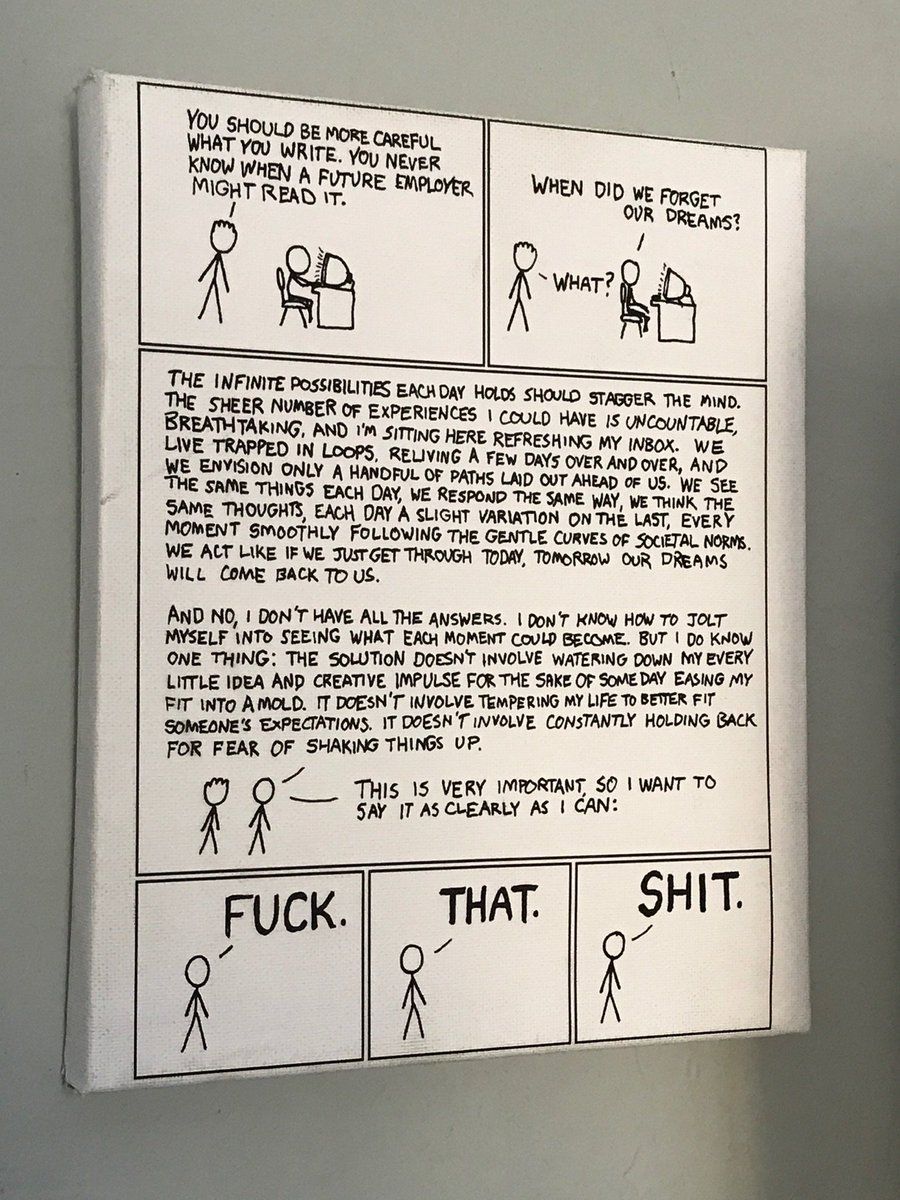 YOU SHOULD BE MORE CAREFUL
WHAT YOU WRITE. YOU NEVER
KNOW WHEN A FUTURE EMPLOYER
MIGHT READ IT.
WHEN DID WE FORGET
OUR DREAMS?
WHAT?
THE INFINITE POSSIBILITIES EACH DAY HOLDS SHOULD STAGGER THE MIND.
THE SHEER NUMBER OF EXPERIENCES I COULD HAVE IS UNCOUNTABLE,
BREATHTAKING, AND I'M SITTING HERE REFRESHING MY INBOX. WE
LIVE TRAPPED IN LOOPS, RELIVING A FEW DAYS OVER AND OVER, AND
WE ENVISION ONLY A HANDFUL OF PATHS LAID OUT AHEAD OF US. WE SEE
THE SAME THINGS EACH DAY, WE RESPOND THE SAME WAY, WE THINK THE
SAME THOUGHTS, EACH DAY A SLIGHT VARIATION ON THE LAST, EVERY
MOMENT SMOOTHLY FOLLOWING THE GENTLE CURVES OF SOCIETAL NORMS.
WE ACT LIKE IF WE JUST GET THROUGH TODAY, TOMORROW OUR DREAMS
WILL COME BACK TO US.
AND NO, I DON'T HAVE ALL THE ANSWERS. I DON'T KNOW HOW TO JOLT
MYSELF INTO SEEING WHAT EACH MOMENT COULD BECOME. BUT I DO KNOW
ONE THING: THE SOLUTION DOESN'T INVOLVE WATERING DOWN MY EVERY
LITTLE IDEA AND CREATIVE IMPULSE FOR THE SAKE OF SOMEDAY EASING MY
FIT INTO A MOLD. IT DOESN'T INVOLVE TEMPERING MY LIFE TO BETTER FIT
SOMEONE'S EXPECTATIONS. IT DOESN'T INVOLVE CONSTANTLY HOLDING BACK
FOR FEAR OF SHAKING THINGS UP.
THIS IS VERY IMPORTANT, SO I WANT TO
SAY IT AS CLEARLY AS I CAN:
FUCK.
THAT.
SHIT.